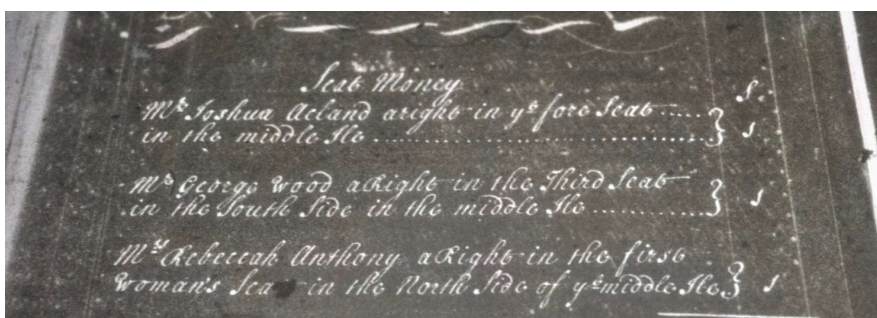 Seat Money
Mr Joshua Acland aright in ye fore Seat .....
in the middle Ile ................................
Mr George Wood a Right in the Third Seat
in the South Side in the middle Ile ............
Mrs Rebeccah Anthony a Right in the first
Woman's Seat in the North Side of ye middle Ile